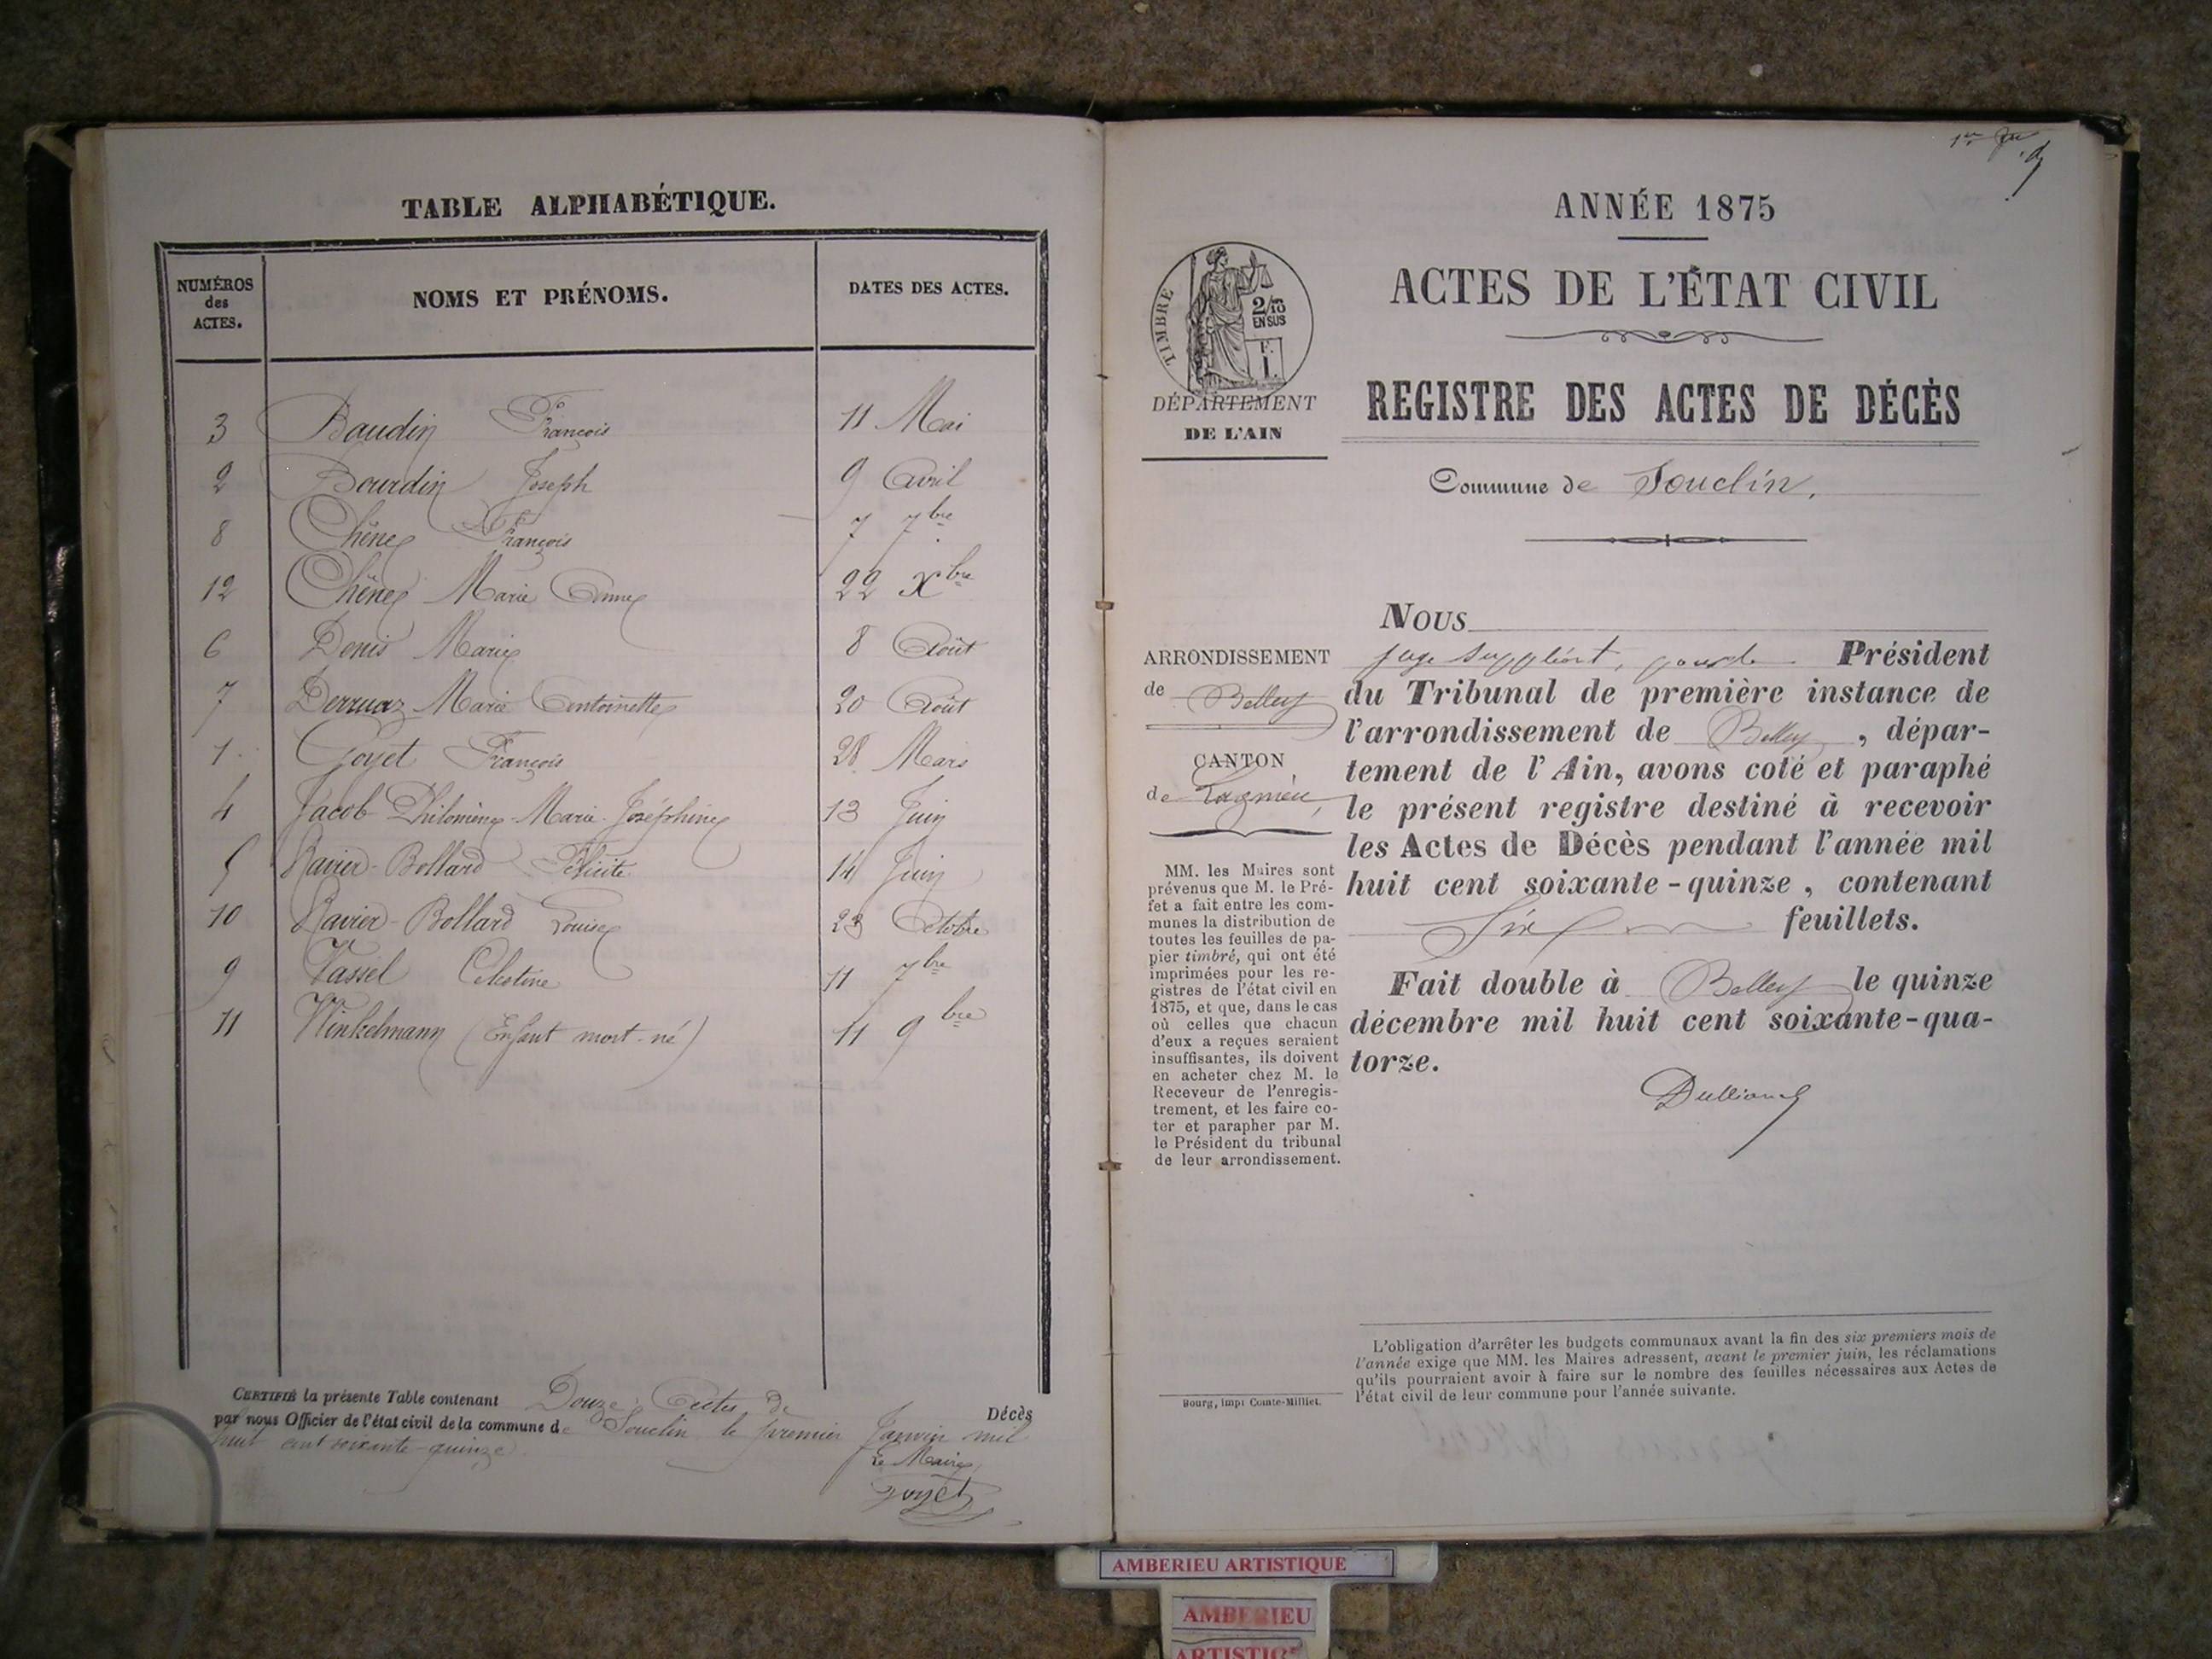 TABLE ALPHABÉTIQUE.
NUMÉROS des ACTES.
NOMS ET PRÉNOMS.
DATES DES ACTES.
3 Baudin François 11 Mai
2 Bourdin Joseph 9 Avril
8 Chêne François 7 7bre
12 Chêne Marie Anne 22 Xbre
6 Denis Marie 8 Août
7 Derruaz Marie Antoinette 20 Août
1 Goyet François 28 Mars
4 Jacob Philomène Marie Joséphine 13 Juin
5 Ravier-Bollard Félicité 14 Juin
10 Ravier-Bollard Louise 23 Octobre
9 Vassel Célestine 11 7bre
11 Winkelmann (Enfant mort-né) 11 9bre
CERTIFIÉ la présente Table contenant Douze Actes de Décès
par nous Officier de l'état civil de la commune de Souclin le premier Janvier mil
huit cent soixante-quinze
Le Maire,
Goyet
1er
ANNÉE 1875
ACTES DE L'ÉTAT CIVIL
TIMBRE
2/10
EN SUS
DÉPARTEMENT
DE L'AIN
REGISTRE DES ACTES DE DÉCÈS
Commune de Souclin.
ARRONDISSEMENT
de Belley
CANTON
de Lagnieu,
MM. les Maires sont
prévenus que M. le Pré-
fet a fait entre les com-
munes la distribution de
toutes les feuilles de pa-
pier timbré, qui ont été
imprimées pour les re-
gistres de l'état civil en
1875, et que, dans le cas
où celles que chacun
d'eux a reçues seraient
insuffisantes, ils doivent
en acheter chez M. le
Receveur de l'enregis-
trement, et les faire co-
ter et parapher par M.
le Président du tribunal
de leur arrondissement.
NOUS
juge suppléant, pour le Président
du Tribunal de première instance de
l'arrondissement de Belley, dépar-
tement de l'Ain, avons coté et paraphé
le présent registre destiné à recevoir
les Actes de Décès pendant l'année mil
huit cent soixante-quinze, contenant
Six feuillets.
Fait double à Belley le quinze
décembre mil huit cent soixante-qua-
torze.
L'obligation d'arrêter les budgets communaux avant la fin des six premiers mois de
l'année exige que MM. les Maires adressent, avant le premier juin, les réclamations
qu'ils pourraient avoir à faire sur le nombre des feuilles nécessaires aux Actes de
l'état civil de leur commune pour l'année suivante.
Bourg, impr Comte-Milliet.
AMBERIEU ARTISTIQUE
AMBERIEU
ARTISTIQ